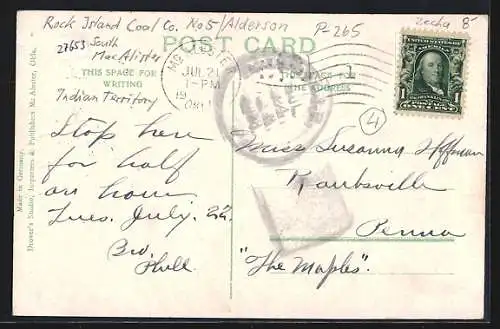 Rock Island Coal Co. No 5/Alderson
P-265
zecha 8-
27653 South
MacAlister
POST CARD
THIS SPACE FOR
WRITING
Indian Territory
JUL 21
1-PM
THE ADDRESS
UNITED STATES OF AMERICA
1
ONE CENT
4
Stop here
for half
an hour
Tues. July. 22.
Bro.
Phill
Miss Susanna Hoffman
Penna
"The Maples".
Made in Germany.
Drover's Studio, Importers & Publishers Mc Alester, Okla.